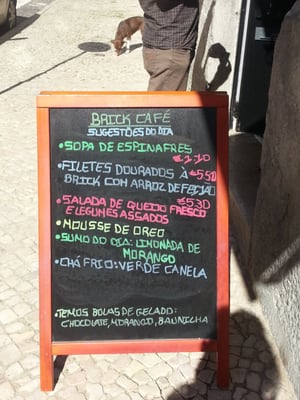 BRICK CAFÉ
SUGESTÕES DO DIA
•SOPA DE ESPINAFRES
€2,20
•FILETES DOURADOS À €5,50
BRICK COM ARROZ DE FEIJÃO
•SALADA DE QUEIJO FRESCO €5,30
E LEGUMES ASSADOS
•MOUSSE DE OREO
•SUMO DO DIA: LIMONADA DE
MORANGO
•CHÁ FRIO: VERDE CANELA
•TEMOS BOLAS DE GELADO:
CHOCOLATE, MORANGO, BAUNILHA